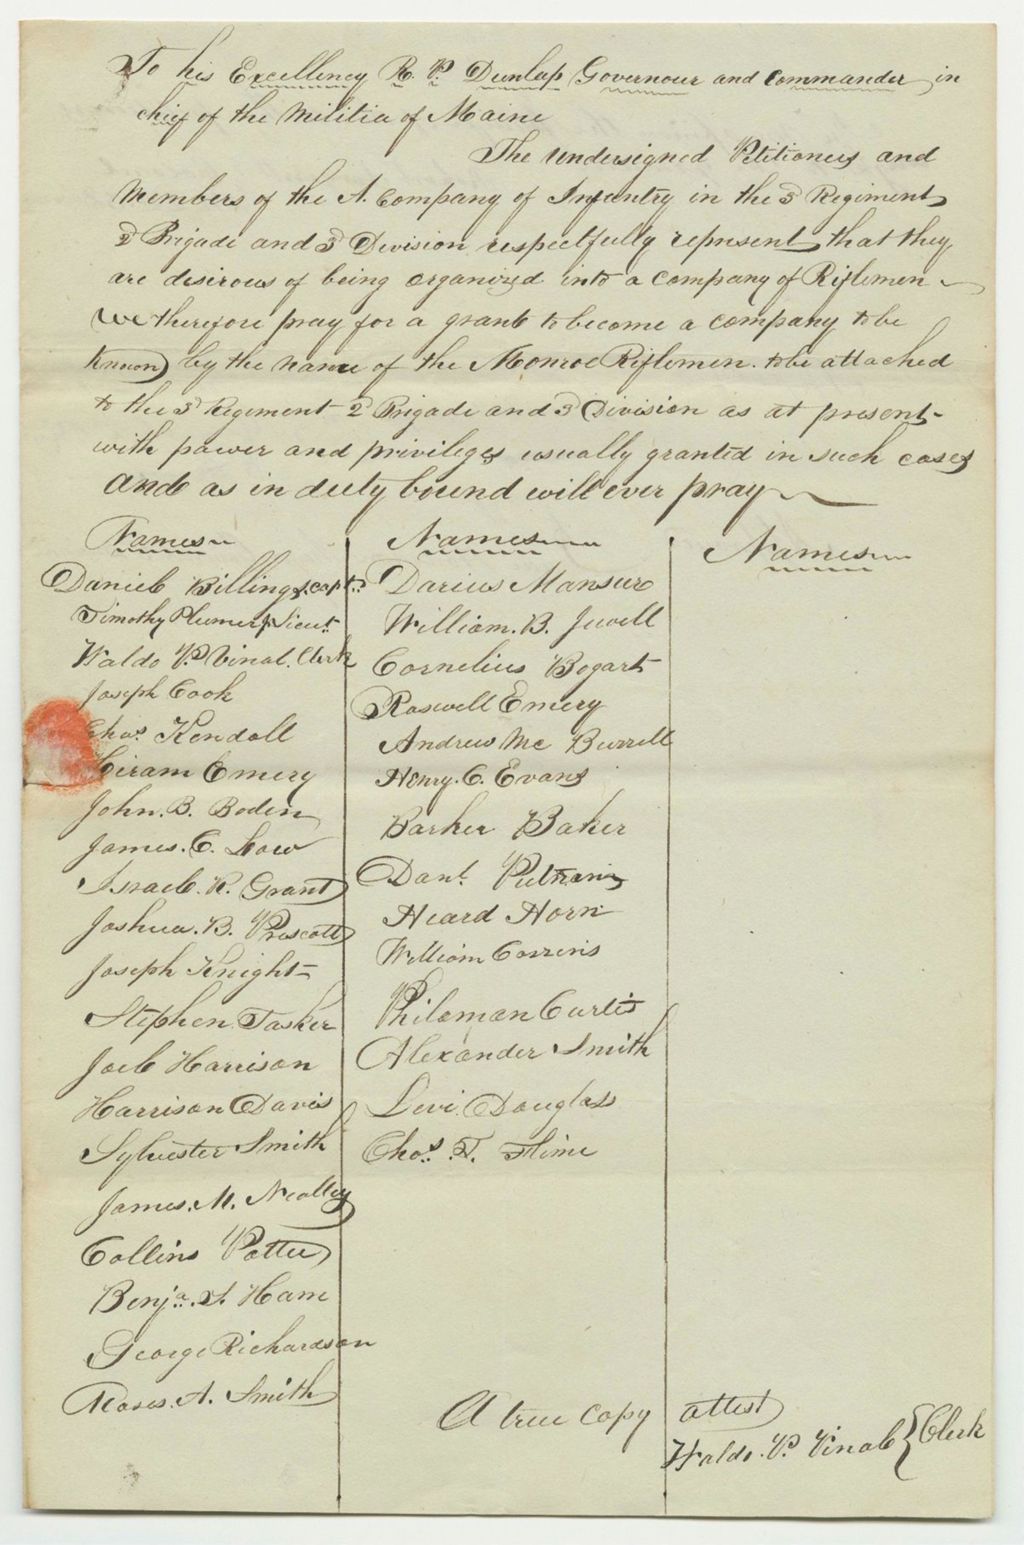 To his Excellency R. P. Dunlap Governour and Commander in
chief of the Militia of Maine
The Undersigned Petitioners and
Members of the A. Company of Infantry in the 3d Regiment
2d Brigade and 3d Division respectfully represent that they
are desirous of being organized into a Company of Riflemen
We therefore pray for a grant to become a company to be
known by the name of the Monroe Riflemen. to be attached
to the 3d Regiment 2d Brigade and 3d Division as at present
with power and privileges usually granted in such cases
And as in duty bound will ever pray
Names
Daniel Billings. capt.
Timothy Plumer Lieut
Waldo P. Vinal. Clerk
Joseph Cook
Chas. Kendall
Hiram Emery
John. B. Boden
James. C. Low
Israel. R. Grant
Joshua. B. Prescott
Joseph Knight
Stephen Tasker
Joel Harrison
Harrison Davis
Sylvester Smith
James. M. Nealley
Collins Potter
Benja. S. Ham
George Richardson
Moses. A. Smith
Names
Darius Mansur
William. B. Jewell
Cornelius Bogart
Roswell Emery
Andrew Mc Burrell
Henry. C. Evans
Barker Baker
Danl. Putnam
Heard Horn
William
Philaman Curtis
Alexander Smith
Levi Douglass
Chas. T.
Names
A true Copy attest
Waldo. P. Vinal } Clerk